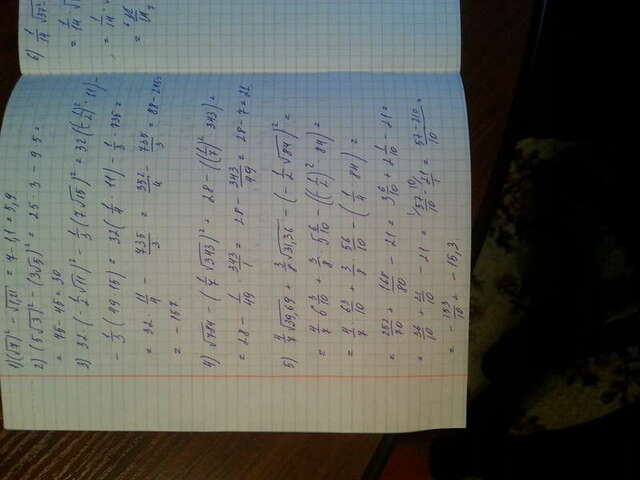 1) (√7)² - √1,21 = 7 - 1,1 = 5,9
2) (5√3)² - (3√5)² = 25 · 3 - 9 · 5 =
= 75 - 45 = 30
3) 32 · (-1/2 √11)² - 1/3 (7√15)² = 32 (-1/2)² · 11) -
- 1/3 (49 · 15) = 32 (1/4 · 11) - 1/3 · 735 =
= 32 · 11/4 - 735/3 = 352/4 - 735/3 = 88 - 245 =
= - 157
4) √784 - (1/7 √343)² = 28 - ((1/7)² · 343) =
= 28 - 1/49 · 343/1 = 28 - 343/49 = 28 - 7 = 21
5) 4/7 √39,69 + 3/8 √31,36 - (-1/2 √84)² =
= 4/7 · 6 3/10 + 3/8 · 5 6/10 - ((-1/2)² · 84) =
= 4/7 · 63/10 + 3/8 · 56/10 - (1/4 · 84) =
= 252/70 + 168/80 - 21 = 3 6/10 + 2 1/10 - 21 =
= 36/10 + 21/10 - 21 = 57/10 - 21/1 = 57 - 210/10 =
= - 153/10 = - 15,3
6) 1/14 √37²
= 1/14 √
= 1/14 ·